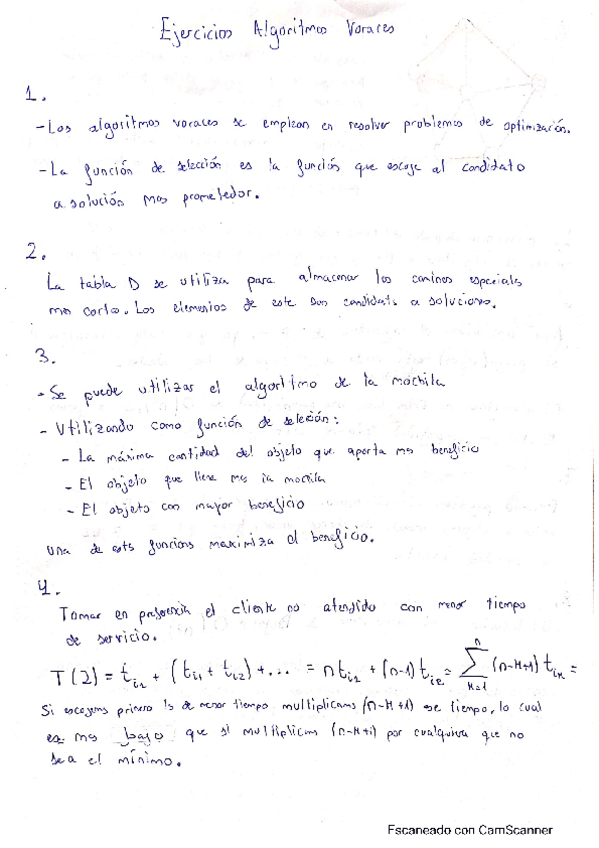 Ejercicios Algoritmos Voraces
1.
- Los algoritmos voraces se emplean en resolver problemas de optimización.
- La función de selección es la función que escoge al candidato
a solución mas prometedor.
2.
La tabla D se utiliza para almacenar los caminos especiales
mas cortos. Los elementos de este son candidats a soluciones.
3.
- Se puede utilizar el algoritmo de la mochila
- Utilizando como función de selección:
- La máxima cantidad del objeto que aporta mas beneficio
- El objeto que llene mas la mochila
- El objeto con mayor beneficio
una de ests funcions maximiza el beneficio.
4.
Tomar en preferencia el cliente no atendido con menor tiempo
de servicio.
T(2) = t_{i1} + (t_{i1} + t_{i2}) + ... = n t_{i1} + (n-1) t_{i2} = \sum_{k=1}^{n} (n-k+1) t_{ik} =
Si escogems primero ls de menor tiempo multiplicams (n-k+1) ese tiempo, lo cual
es mas bajo que si multiplicms (n-k+1) por cualquiera que no
sea el mínimo.
Escaneado con CamScanner